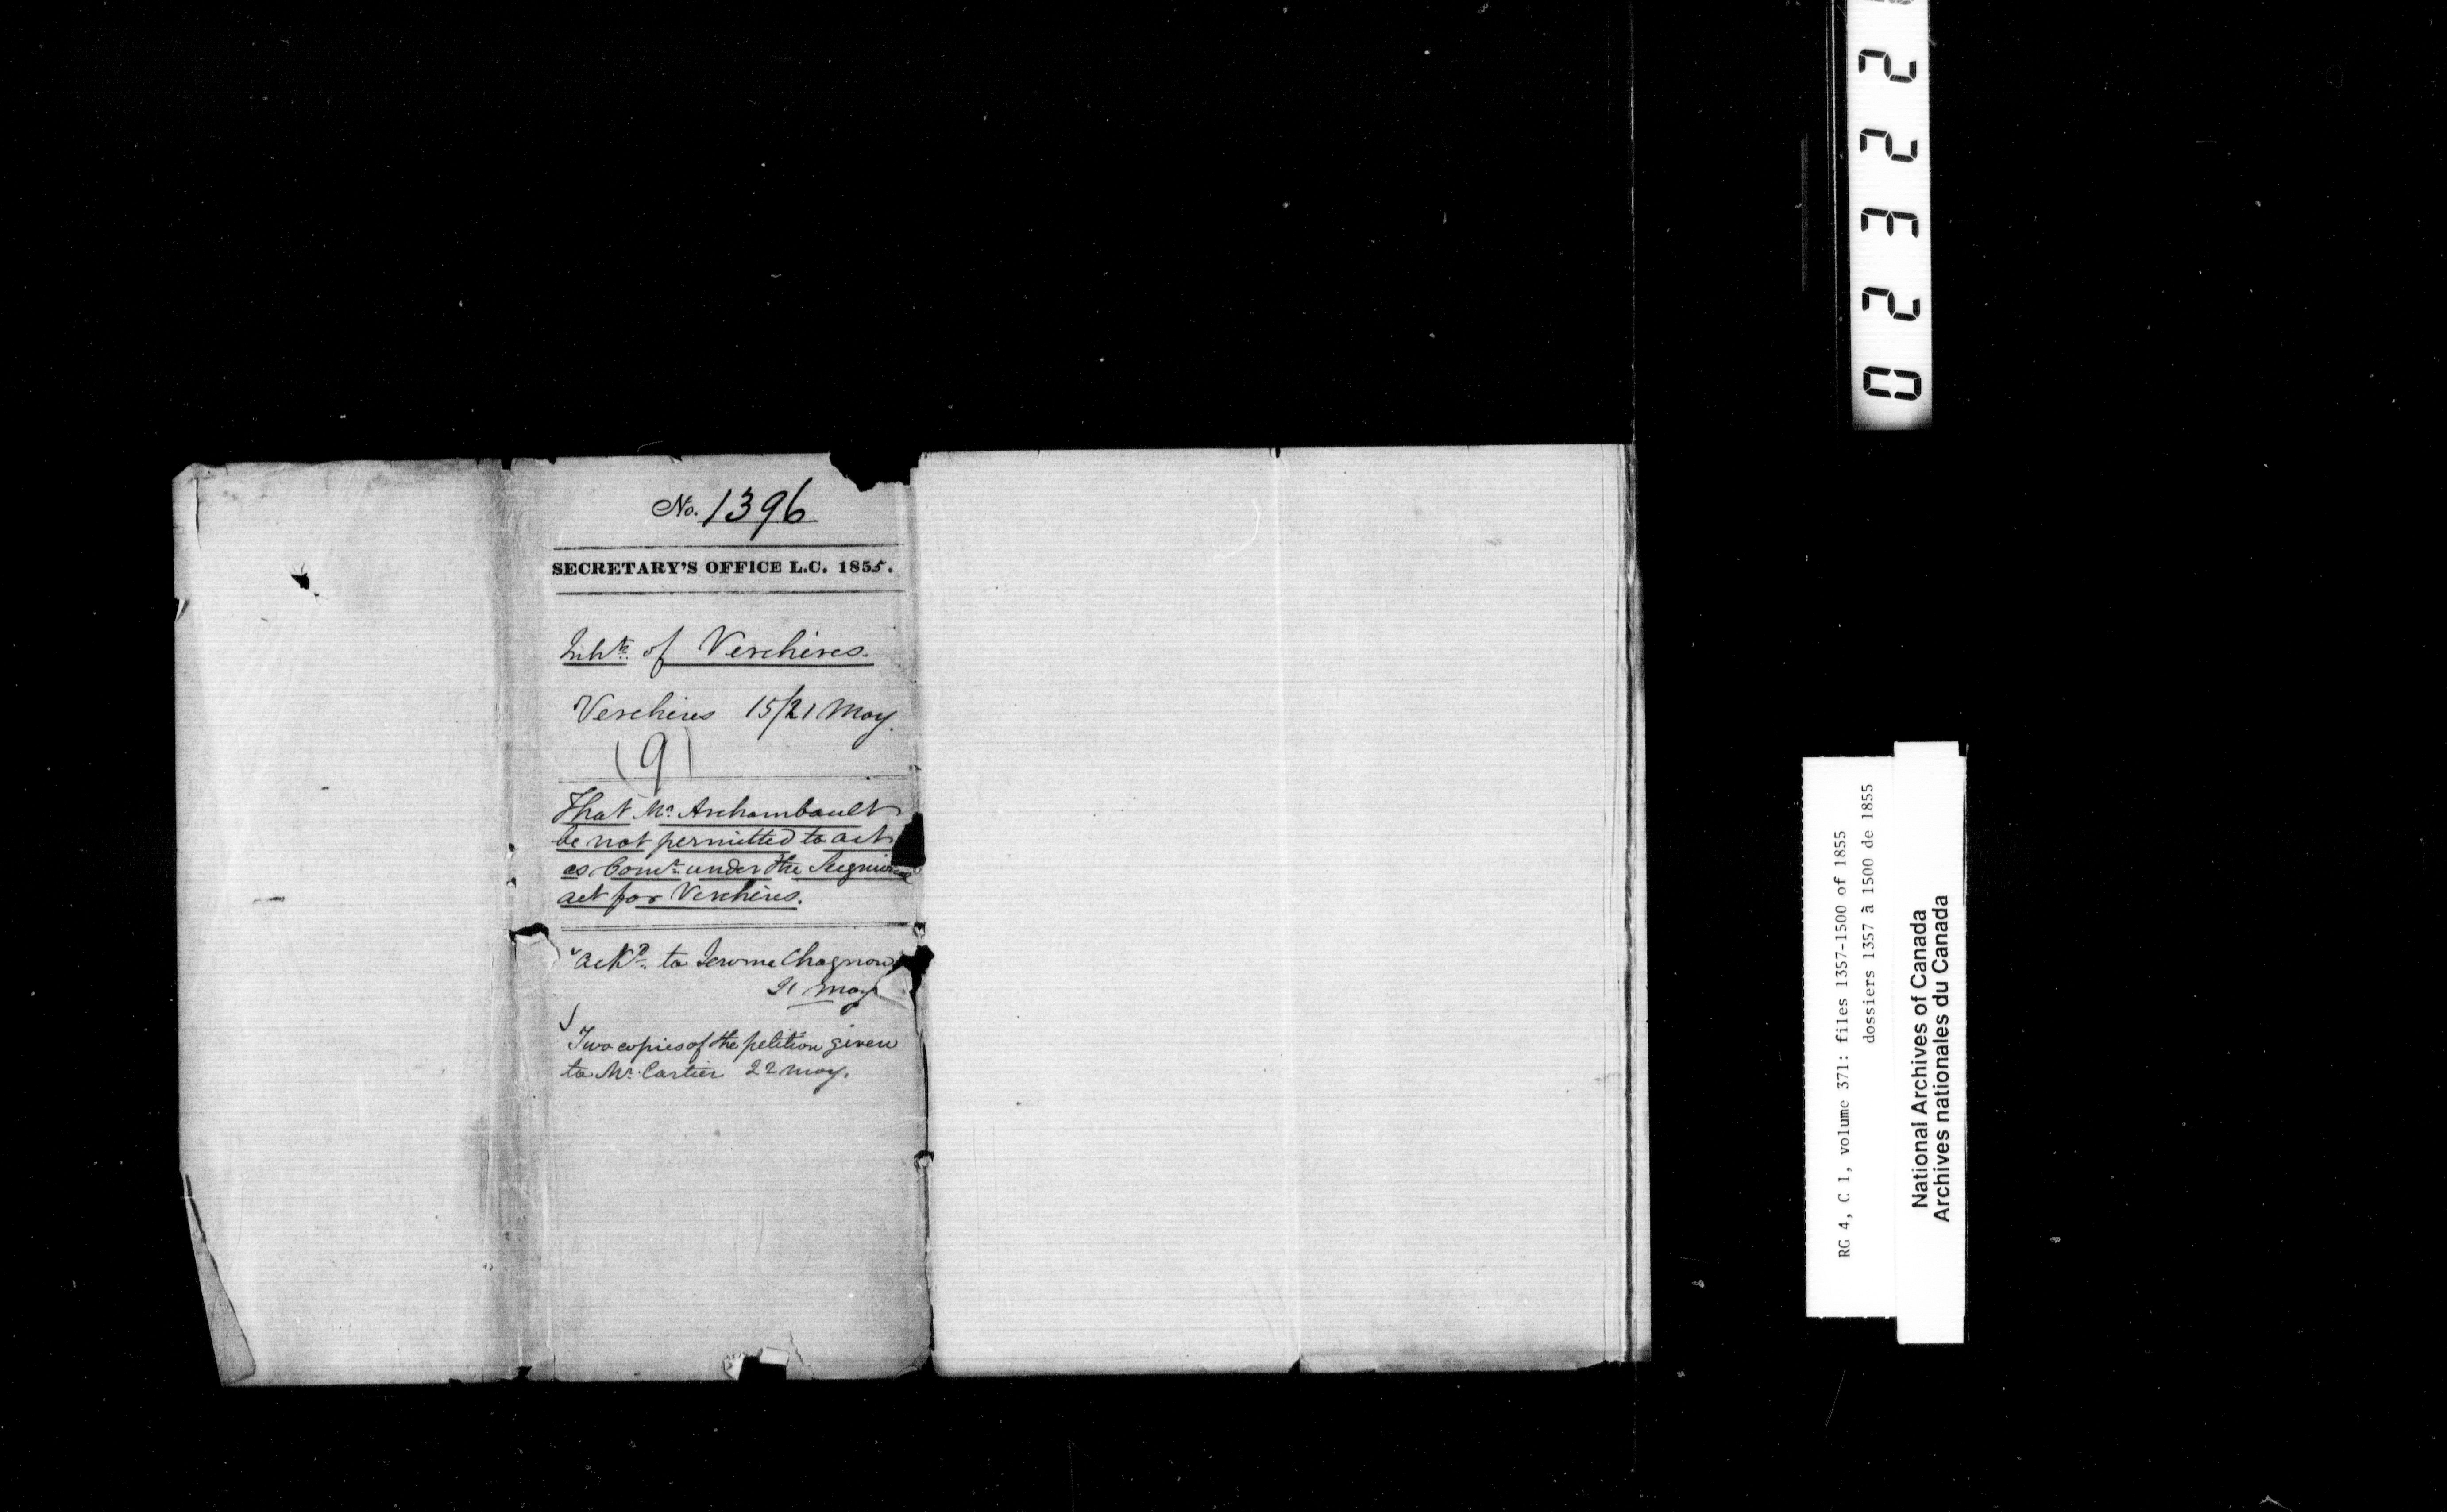 No. 1396
SECRETARY'S OFFICE L.C. 1855.
Inhts. of Verchères.
Verchères 15/21 May.
(9)
That Mr. Archambault
be not permitted to act
as Comr. under the Seignioral
act for Verchères.
Ackd. to Jerome Chagnon
21 May
Two copies of the petition given
to Mr. Cartier 22 May.
0 2 3 2 2
RG 4, C 1, volume 371: files 1357-1500 of 1855
dossiers 1357 à 1500 de 1855
National Archives of Canada
Archives nationales du Canada